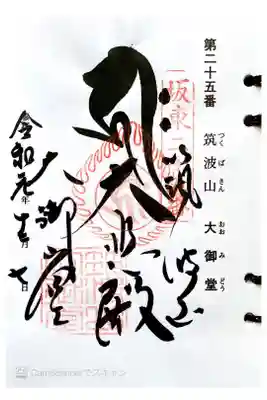 第二十五番 筑波山 大御堂
つくばさん おおみどう
坂東二
筑波山
大悲殿
大御堂
令和元年 月 日
CamScannerでスキャン